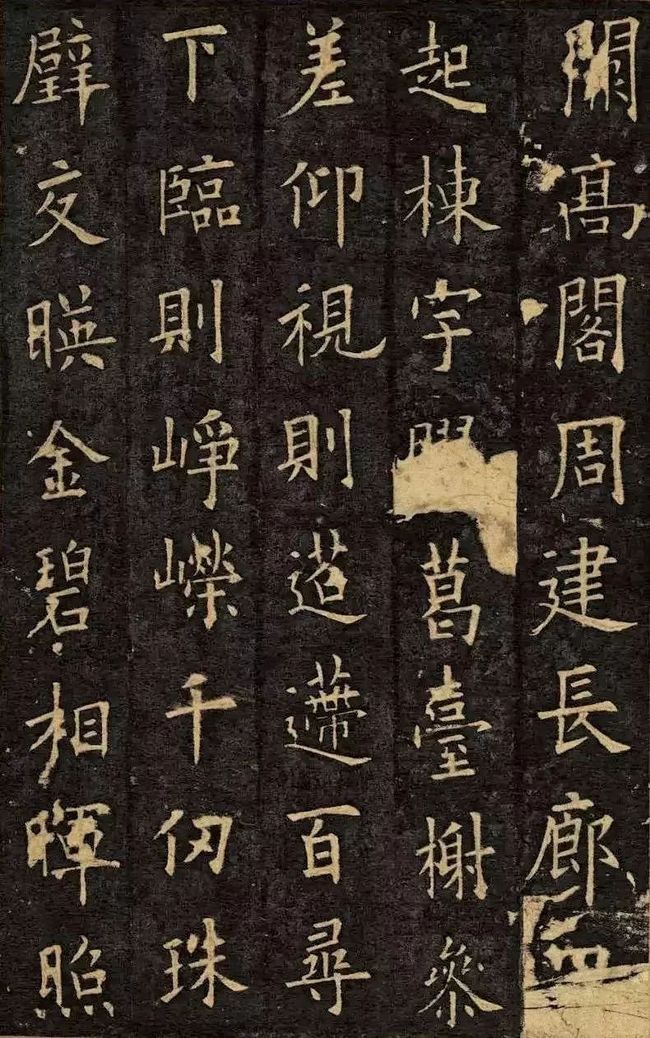 闕高閣周建長廊四
起棟宇膠葛臺榭參
差仰視則迢遰百尋
下臨則崢嶸千仞珠
璧交暎金碧相暉照